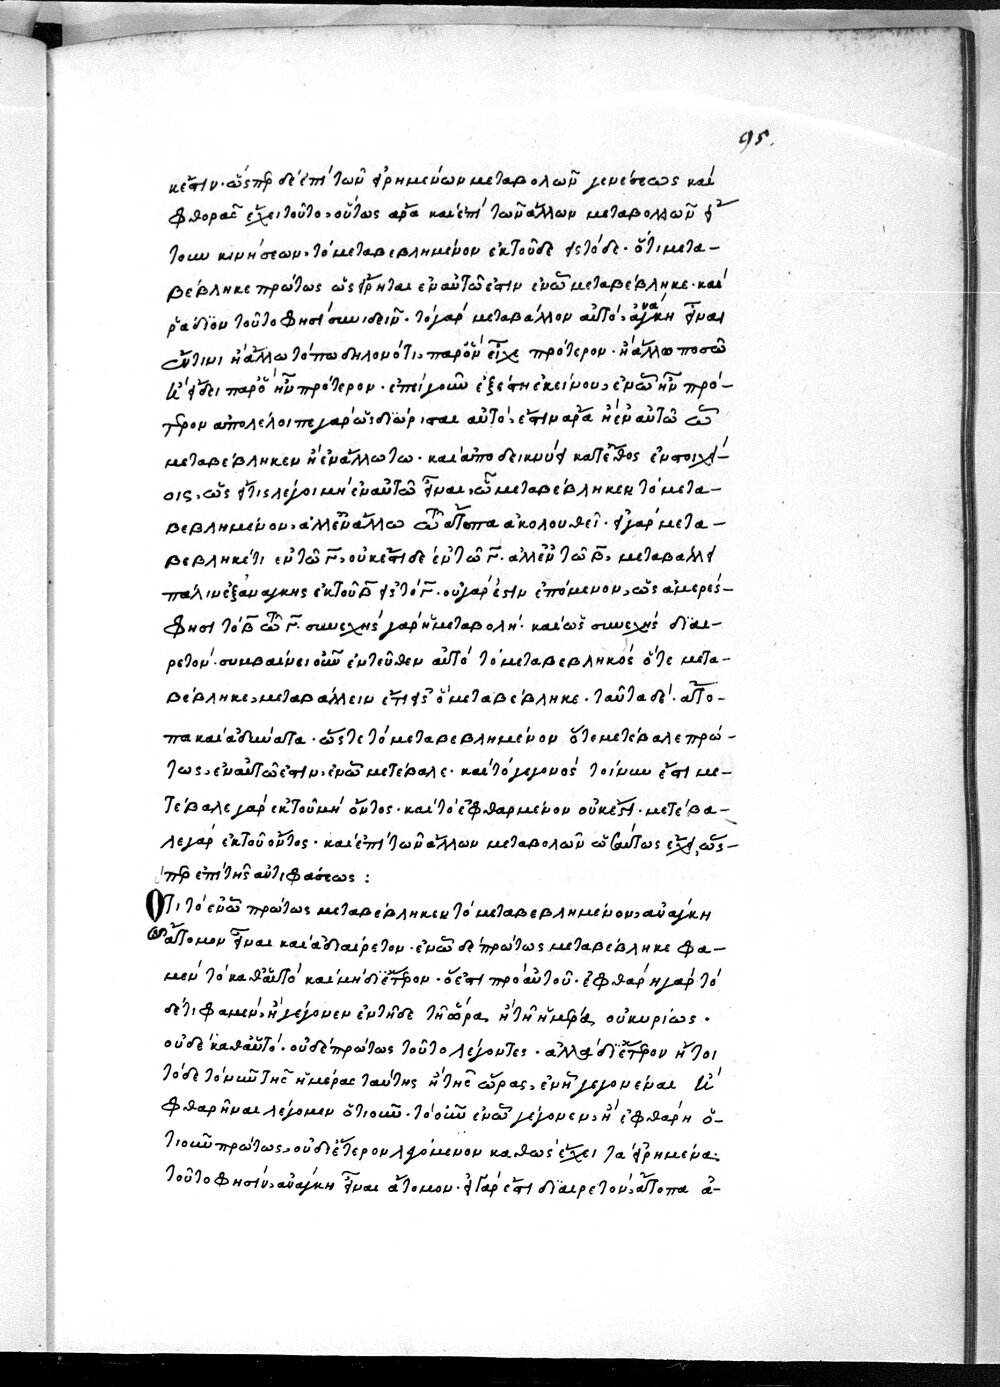 95.
κέστιν· ὥσπερ δὲ ἐπὶ τῶν εἰρημένων μεταβολῶν γενέσεως καὶ
φθορᾶς ἔχει τοῦτο, οὕτως ἄρα καὶ ἐπὶ τῶν ἄλλων μεταβολλῶν ἤ
τοι κινήσεων, τὸ μεταβεβλημένον ἐκ τοῦδε εἰς τόδε· ὅτι μετα-
βέβληκε πρώτως ὡς εἴρηται ἐν αὐτῶ ἐστιν ἐν ὧ μεταβέβληκε· καὶ
ῥάδιον τοῦτο φησὶ συνιδεῖν· τὸ γὰρ μεταβάλλον αὐτὸ, ἀνάγκη εἶναι
ἔν τινι ἢ ἄλλω τόπω δηλονότι, παρ' ὃν εἶχε πρότερον· ἢ ἄλλω ποσῶ
καὶ εἴδει παρ' ὃ ἦν πρότερον· ἐπεὶ γοῦν ἐξέστη ἐκείνου, ἐν ὧ ἦν πρό-
τερον ἀπολέλοιπε γὰρ ὡς διώρισται αὐτό, ἔστιν ἄρα ἢ ἐν αὐτῶ ὧ
μεταβέβληκεν ἢ ἐν ἄλλω τω· καὶ ἀποδείκνυσι κατ' ἔθος ἐν στοιχεί-
οις, ὡς εἴ τις λέγοι μὴ ἐν αὐτῶ εἶναι, ὧ μεταβέβληκεν τὸ μετα-
βεβλημένον, ἀλλ' ἐν ἄλλω ὧ ἄτοπα ἀκολουθεῖ· εἰ γὰρ μετα-
βέβληκέ τι ἐν τῶ γ, οὐκ ἔστι δὲ ἐν τῶ γ· ἀλλ' ἐν τῶ β, μεταβάλλει
πάλιν ἐξ ἀνάγκης ἐκ τοῦ β εἰς τὸ γ· οὐ γάρ ἐστιν ἑπόμενον, ὡς ἀμερές
φησι τὸ β τῶ γ· συνεχὴς γὰρ ἡ μεταβολή· καὶ ὡς συνεχὴς διαι-
ρετόν· συμβαίνει οὖν ἐντεῦθεν αὐτὸ τὸ μεταβεβληκὸς ὅτε μετα-
βέβληκε, μεταβάλλειν ἔτι εἰς ὃ μεταβέβληκε· ταῦτα δὲ· ἄτο-
πα καὶ ἀδύνατα· ὥστε τὸ μεταβεβλημένον ὅτε μετέβαλε πρώ-
τως, ἐν αὐτῶ ἐστιν, ἐν ὧ μετέβαλε· καὶ τὸ γεγονὸς τοίνυν ἔστι με-
τέβαλε γὰρ ἐκ τοῦ μὴ ὄντος· καὶ τὸ ἐφθαρμένον οὐκ ἔστι· μετέβα-
λε γὰρ ἐκ τοῦ ὄντος· καὶ ἐπὶ τῶν ἄλλων μεταβολῶν ὡσαύτως ἔχει, ὥσ-
περ ἐπὶ τῆς ἀντιφάσεως:
Ὅτι τὸ ἐν ὧ πρώτως μεταβέβληκεν τὸ μεταβεβλημένον, ἀνάγκη
ἄτομον εἶναι καὶ ἀδιαίρετον· ἐν ὧ δὲ πρώτως μεταβέβληκε φα-
μὲν τὸ καθ' αὑτὸ καὶ μὴ δι' ἕτερον· ὅ ἐστι πρὸ αὐτοῦ· ἐφθάρη γὰρ τό
δέ τι φαμὲν, ἢ γέγονεν ἐν τῆδε τῆ ὥρα, ἢ τῆ ἡμέρα, οὐ κυρίως·
οὐδὲ καθ' αὑτό· οὐδὲ πρώτως τοῦτο λέγοντες· ἀλλὰ δι' ἕτερον ἤτοι
τόδε τὸ νῦν τῆς ἡμέρας ταύτης ἢ τῆς ὥρας, ἐν ἧ γεγονέναι καὶ
φθαρῆναι λέγομεν ὁτιοῦν· τὸ οὖν ἐν ὧ γέγονεν, ἢ ἐφθάρη ὁ-
τιοῦν πρώτως, οὐ δι' ἕτερον λεγόμενον καθὼς ἔχει τὰ εἰρημένα·
τοῦτο φησὶν, ἀνάγκη εἶναι ἄτομον· εἰ γάρ ἐστι διαιρετόν, ἄτοπα ἀ-